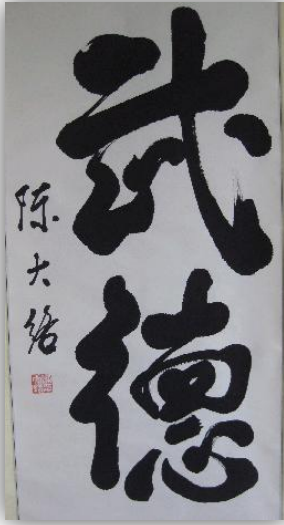 武德
陈大